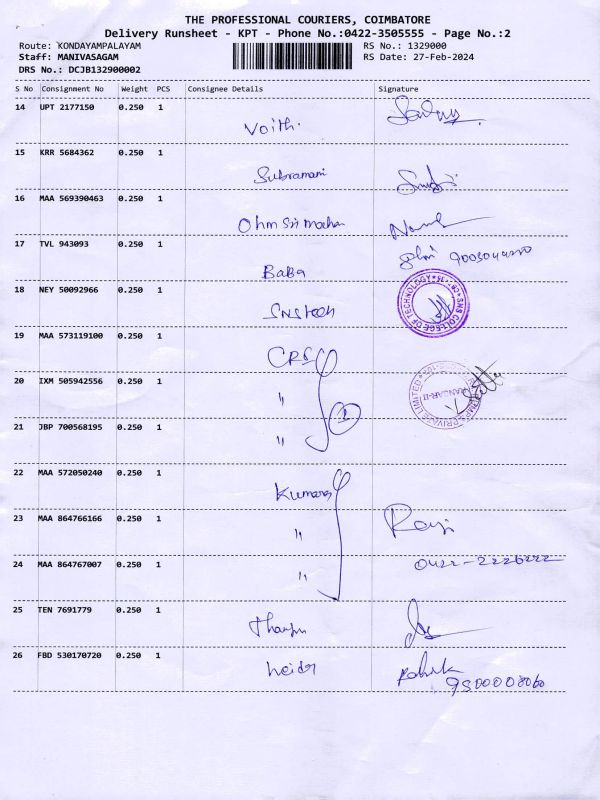 THE PROFESSIONAL COURIERS, COIMBATORE
Delivery Runsheet - KPT - Phone No.:0422-3505555 - Page No.:2
Route: KONDAYAMPALAYAM RS No.: 1329000
Staff: MANIVASAGAM RS Date: 27-Feb-2024
DRS No.: DCJB132900002
S No Consignment No Weight PCS Consignee Details Signature
14 UPT 2177150 0.250 1
Voith
15 KRR 5684362 0.250 1
Subramani
16 MAA 569390463 0.250 1
Ohm Sri
17 TVL 943093 0.250 1
BaBa
18 NEY 50092966 0.250 1
SNS tech
SNS COLLEGE OF TECHNOLOGY
19 MAA 573119100 0.250 1
CRS
20 IXM 505942556 0.250 1
"
PRIVATE LIMITED
21 JBP 700568195 0.250 1
"
22 MAA 572050240 0.250 1
Kumarag
23 MAA 864766166 0.250 1
"
24 MAA 864767007 0.250 1
"
0422-2226222
25 TEN 7691779 0.250 1
26 FBD 530170720 0.250 1
9500008060